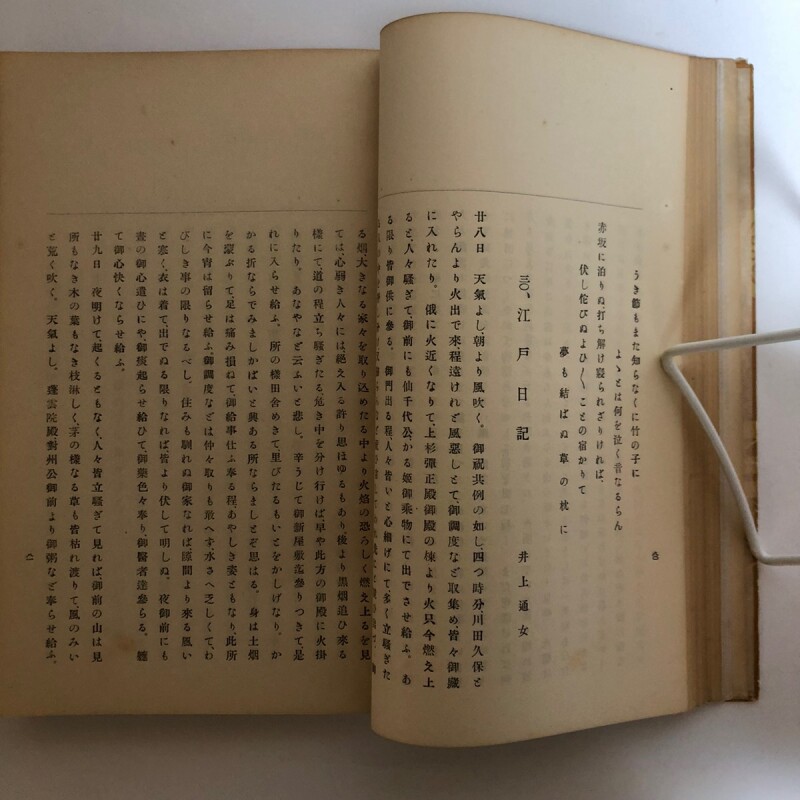 うき節もまた知らなくに竹の子に
よゝとは何を泣く音なるらん
赤坂に泊りぬ打ち解け寝られざりければ、
伏し侘びぬよひ〳〵ことの宿かりて
夢も結ばぬ草の枕に
三〇、江戸日記
井上通女
廿八日　天氣よし、朝より風吹く。御祝共例の如し、四つ時分川田久保と
やらんより火出で來程遠けれど風惡しとて、御調度など取集め、皆々御藏
に入れたり。俄に火近くなりて、上杉彈正殿御殿の棟より火只今燃え上
ると、人々騷ぎて、御前にも仙千代公、かる姬御乘物にて出でさせ給ふ。あ
る限り皆御供に參る、御門出る程、人々皆いと心細げにて多く立騷ぎた
る烟大きなる家々を取り込めたる中より火焰の恐ろしく燃え上るを見
ては、心弱き人々には、絕え入る許り思ほゆるもあり、後より黑烟追ひ來る
樣にて、道の程立ち騷ぎたる、危き中を分け行けば、早や此方の御殿に火掛
りたり。あなやなど云ふいと悲し。辛うじて御新屋敷迄參りつきて、是
れに入らせ給ふ、所の樣田舍めきて、里びたるもいとをかしげなり。か
かる折ならでみましかばいと興ある所ならましとぞ思はる。身は土烟
を蒙ぶりて、足は痛み損ねて、御給事仕ふ奉る程、あやしき姿ともなり、此所
に今宵は留らせ給ふ、御調度などは仲々取りも敢へす、水さへ乏しくて、わ
びしき事の限りなるべし。住みも馴れぬ御家なれば隙間より來る風い
と寒く、衣は着て出でぬる限りなれば皆より伏して明しぬ。夜御前にも
晝の御心遣ひにや御痰起らせ給ひて、御藥色々奉り、御醫者達參らる。
て御心快くならせ給ふ。
廿九日　夜明けて、起くるともなく、人々皆立騷ぎて見れば、御前の山は見
所もなき木の葉もなき枝淋しく、茅の樣なる草も皆枯れ渡りて、風のみい
と荒く吹く。天氣よし。殿對州公御前より御粥など奉らせ給ふ、